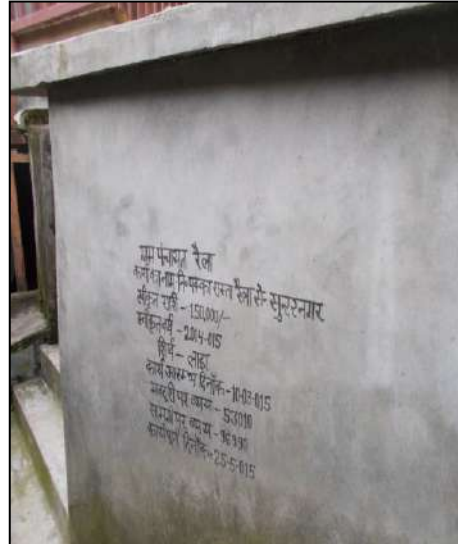 ग्राम पंचायत रैला
कार्य का नाम नि० पक्का रास्ता रैला से सुन्दरनगर
स्वीकृत राशि - 150,000/-
स्वीकृत वर्ष - 2014-015
शीर्ष - लाडा
कार्य आरम्भ दिनाँक:-10-03-015
मजदूरी पर व्यय - 53010
सामग्री पर व्यय - 96990
कार्यपूर्ण दिनाँक:-25-5-015